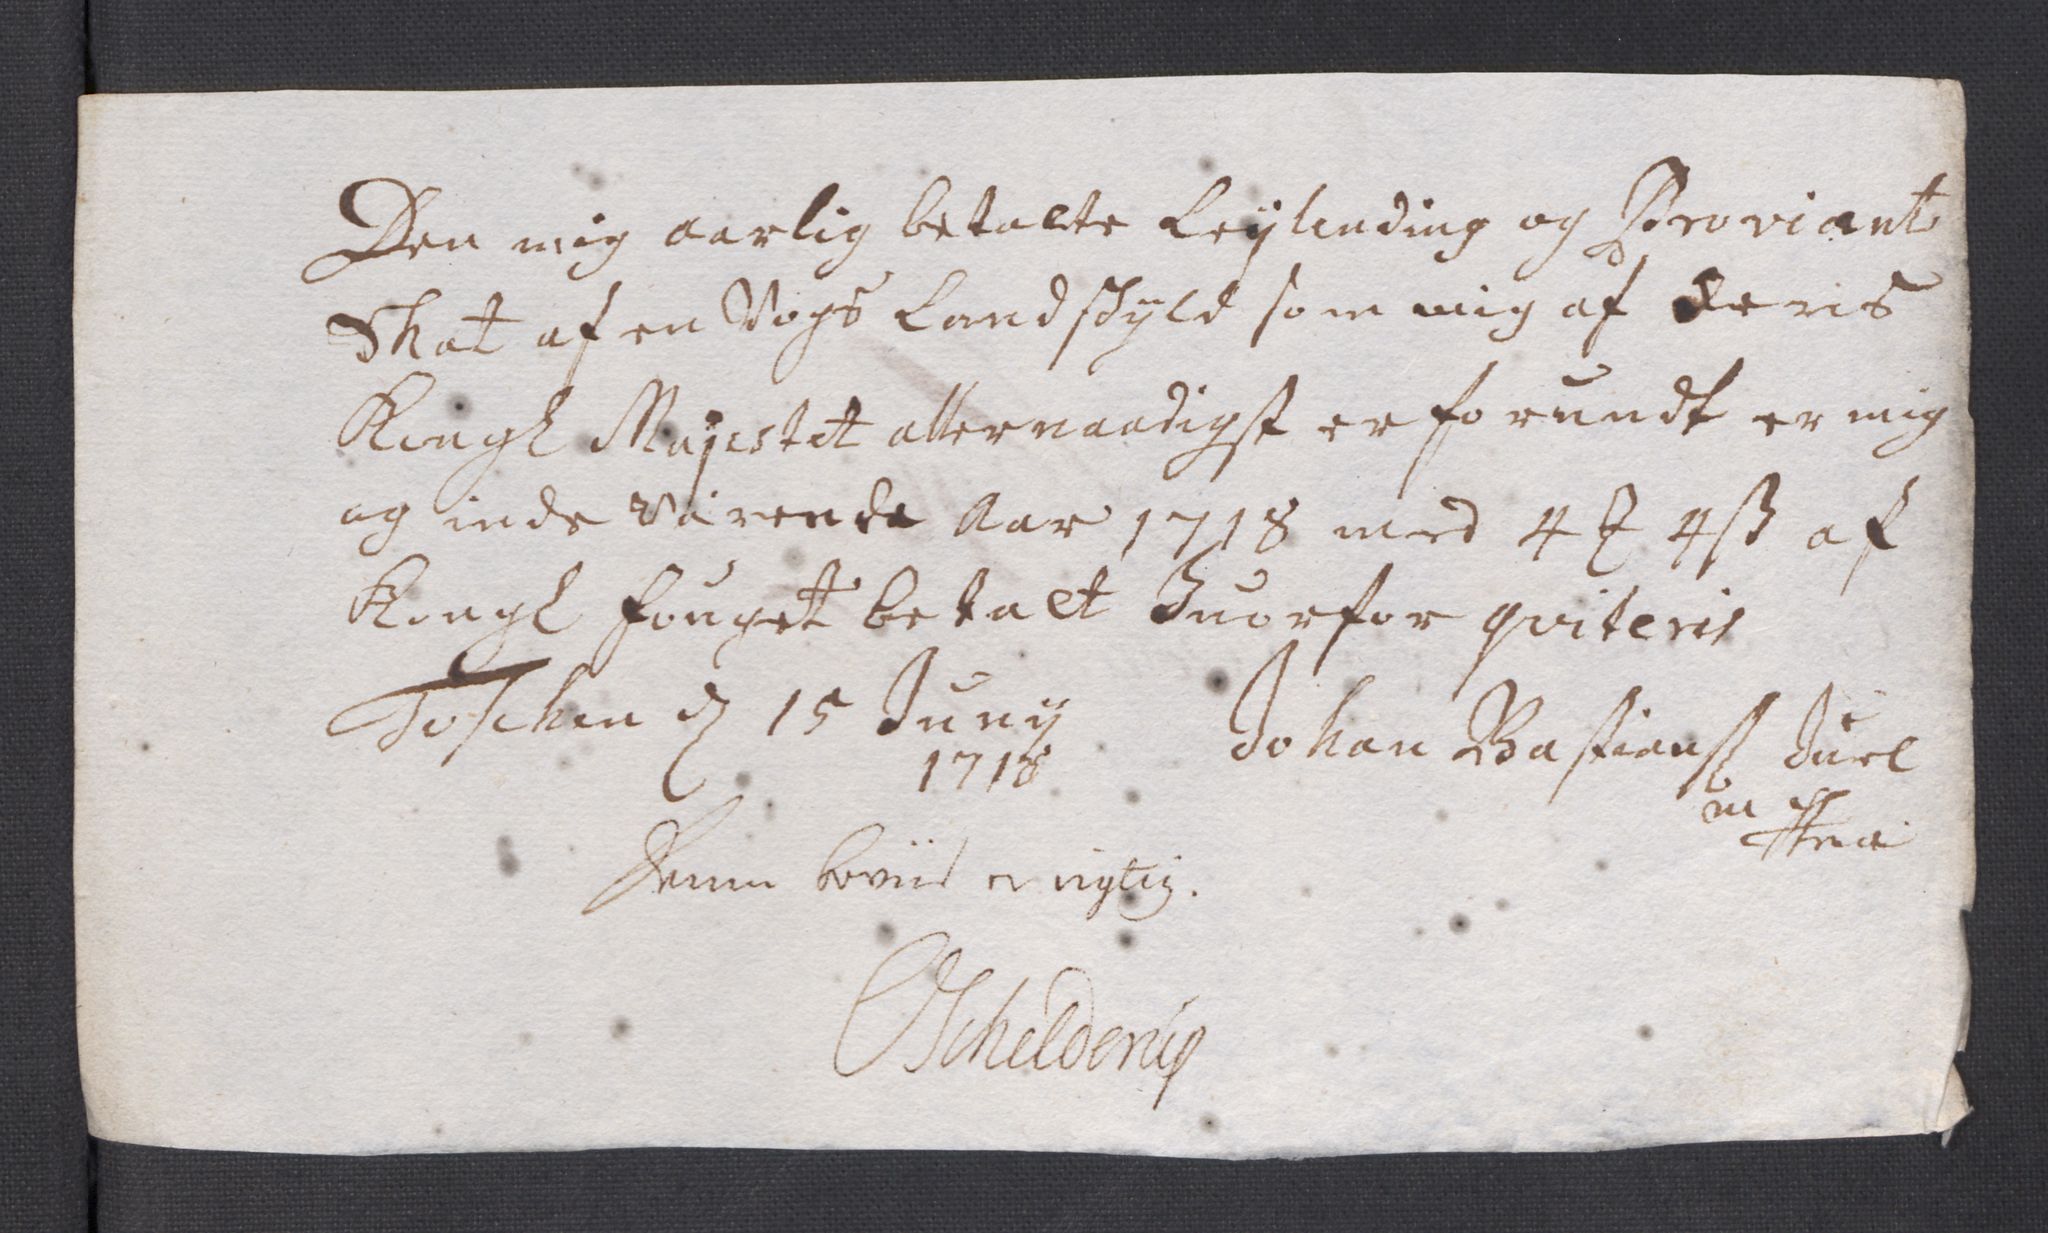 Den mig aarlig betalte Leylending og Proviant
Skat af en Vogs Landskyld som mig af deris
Kongl Majestet allernaadigst er forundt er mig
og inde værende Aar 1718 med 4 4 ß af
Kongl fouget betalt Huorfor qviteris
Toschen d 15 Juny Johan Bastianß Juel
1718
m
Denne beviis er rigtig.
OSchelderup